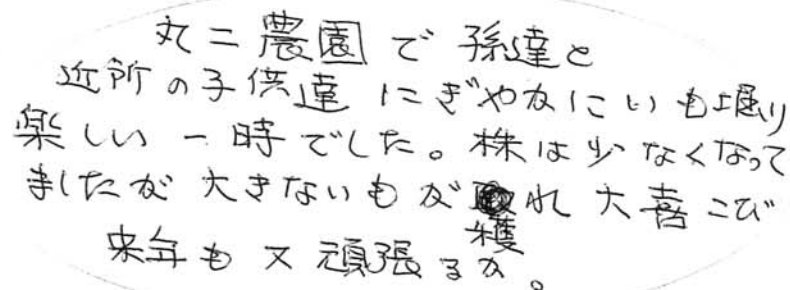 丸二農園で孫達と
近所の子供達にぎやかにいも堀り
楽しい一時でした。株は少なくなって
ましたが大きないもが穫れ大喜こび
来年も又頑張るか。